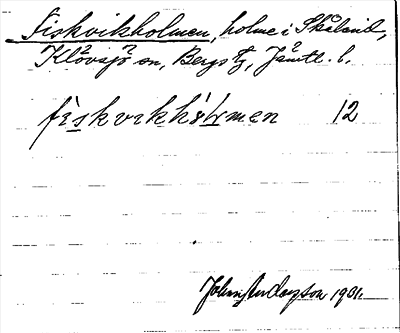 Fiskvikholmen, holme i Skåland,
Klövsjö sn, Bergs tg, Jämtl. l.
fiskvikhòlmen 12
John Anderzson 1931.